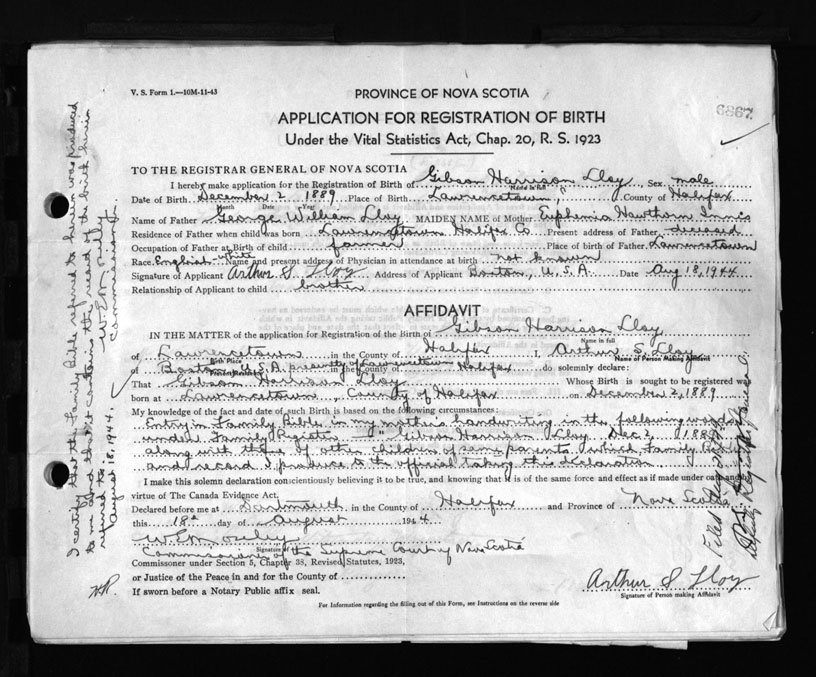 V. S. Form 1.—10M-11-43
PROVINCE OF NOVA SCOTIA
APPLICATION FOR REGISTRATION OF BIRTH
Under the Vital Statistics Act, Chap. 20, R. S. 1923
TO THE REGISTRAR GENERAL OF NOVA SCOTIA
I hereby make application for the Registration of Birth of Gibson Harrison Lloy Sex male
Name in full
Date of Birth December 2 1889 Place of Birth Lawrencetown, County of Halifax
Month Date Year
Name of Father George William Lloy MAIDEN NAME of Mother Euphemia Hawthorn Innis
Residence of Father when child was born Lawrencetown Halifax Co. Present address of Father deceased
Occupation of Father at Birth of child farmer Place of birth of Father Lawrencetown
Race English-white Name and present address of Physician in attendance at birth not known
Signature of Applicant Arthur S Lloy Address of Applicant Boston, U.S.A. Date Aug 18, 1944
Relationship of Applicant to child brother
AFFIDAVIT
IN THE MATTER of the application for Registration of the Birth of Gibson Harrison Lloy
Name in full
of Lawrencetown in the County of Halifax I, Arthur S. Lloy
Birth Place
Name of Person Making Affidavit
of Boston, U.S.A. presently of Lawrencetown in the County of Halifax do solemnly declare:
Present Residence
That Gibson Harrison Lloy Whose Birth is sought to be registered was
born at Lawrencetown, County of Halifax on December 2, 1889
My knowledge of the fact and date of such Birth is based on the following circumstances:
Entry in Family Bible in my mother's handwriting in the following words
under Family Register — "Gibson Harrison Lloy Dec 2, 1889"
along with those of other children of same parents which Family Bible
and record I produce to the official taking this declaration.
I make this solemn declaration conscientiously believing it to be true, and knowing that it is of the same force and effect as if made under oath and by
virtue of The Canada Evidence Act.
Declared before me at Dartmouth in the County of Halifax and Province of Nova Scotia
this 18th day of August 1944
Signature of
Commissioner of the Supreme Court of Nova Scotia
Commissioner under Section 5, Chapter 38, Revised Statutes, 1923,
or Justice of the Peace in and for the County of
If sworn before a Notary Public affix seal.
Arthur S Lloy
Signature of Person making Affidavit
For Information regarding the filling out of this Form, see Instructions on the reverse side
I certify that the Family Bible referred to herein was produced
to me and that it contains the record of the birth herein
referred to.
August 18, 1944.
Commissioner
Filed Aug
Deputy Registrar General